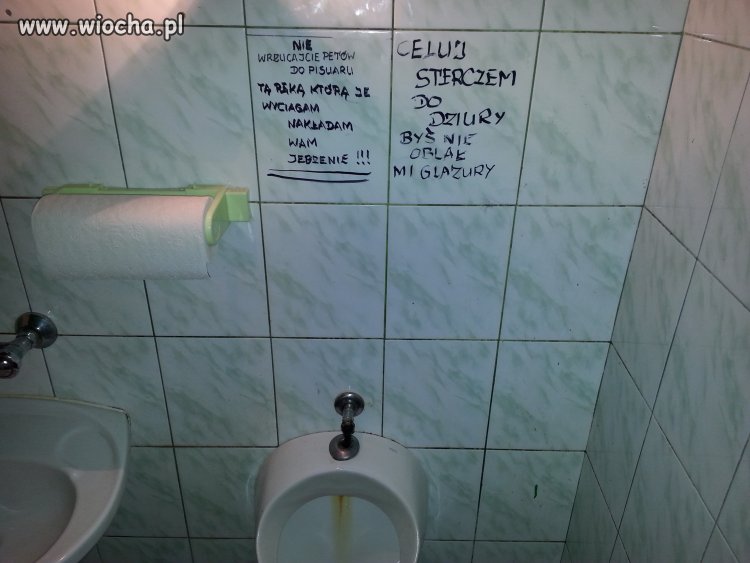 www.wiocha.pl
NIE
WRZUCAJCIE PETÓW
DO PISUARU
TĄ RĘKĄ KTÓRĄ JE
WYCIĄGAM
NAKŁADAM
WAM
JEDZENIE !!!
CELUJ
STERCZEM
DO
DZIURY
BYŚ NIE
OBLAŁ
MI GLAZURY